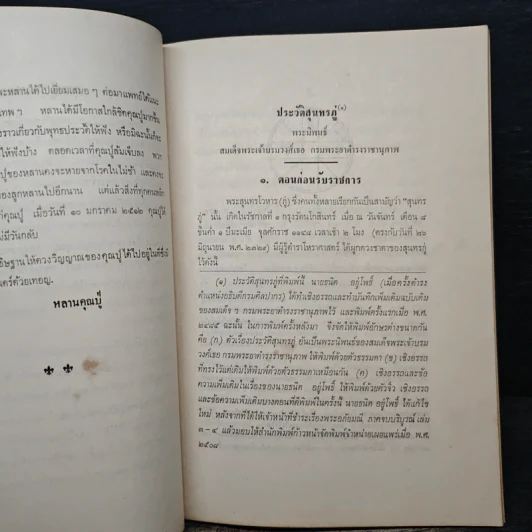 ะหลานได้ไปเยี่ยมเสมอ ๆ ต่อมาแพทย์ได้แนะ
เทพฯ หลานได้มีโอกาสใกล้ชิดคุณปู่มากขึ้น
ราวเกี่ยวกับพุทธประวัติให้ฟัง หรือมิฉะนั้นก็จะ
ให้ฟังบ้าง ตลอดเวลาที่คุณปู่ล้มเจ็บลง พวก
ปู่ของหลานคงจะหายจากโรคในไม่ช้า และคงจะ
องลูกหลานไปอีกนาน แต่แล้วสิ่งที่ทุกคนหลีก
คุณปู่ เมื่อวันที่ ๑๐ มกราคม ๒๕๑๒ คุณปู่ได้
มีวันกลับ
ธิษฐานให้ดวงวิญญาณของคุณปู่ได้ไปอยู่ในที่ซึ่ง
ตร์ด้วยเทอญ.
หลานคุณปู่
ประวัติสุนทรภู่(๑)
พระนิพนธ์
สมเด็จพระเจ้าบรมวงศ์เธอ กรมพระยาดำรงราชานุภาพ
๑. ตอนก่อนรับราชการ
พระสุนทรโวหาร (ภู่) ซึ่งคนทั้งหลายเรียกกันเป็นสามัญว่า "สุนทร
ภู่" นั้น เกิดในรัชกาลที่ ๑ กรุงรัตนโกสินทร์ เมื่อ ณ วันจันทร์ เดือน ๘
ขึ้นค่ำ ๑ ปีมะเมีย จุลศักราช ๑๑๔๘ เวลาเช้า ๒ โมง (ตรงกับวันที่ ๒๖
มิถุนายน พ.ศ. ๒๓๒๙) มีผู้รู้ตำราโหราศาสตร์ ได้ผูกดวงชาตาของสุนทรภู่
ไว้ดังนี้
(๑) ประวัติสุนทรภู่ที่พิมพ์นี้ นายธนิต อยู่โพธิ์ (เมื่อครั้งดำรง
ตำแหน่งอธิบดีกรมศิลปากร) ได้ทำเชิงอรรถและทำบันทึกเพิ่มเติมฉบับเดิม
ของสมเด็จ ฯ กรมพระยาดำรงราชานุภาพไว้ และพิมพ์ครั้งแรกเมื่อ พ.ศ.
๒๔๙๕ ฉะนั้น ในการพิมพ์ครั้งหลังมา จึงจัดให้พิมพ์อักษรต่างขนาดกัน
คือ (ก) ตัวเรื่องประวัติสุนทรภู่ อันเป็นพระนิพนธ์ของสมเด็จพระเจ้าบรม
วงศ์เธอ กรมพระยาดำรงราชานุภาพ ให้พิมพ์ด้วยตัวธรรมดา (ข) เชิงอรรถ
ที่ทรงไว้แต่เดิมให้พิมพ์ด้วยตัวธรรมดาเหมือนกัน (ค) เชิงอรรถและข้อ
ความเพิ่มเติมในเรื่องของนายธนิต อยู่โพธิ์ ให้พิมพ์ด้วยตัวจิ๋ว เชิงอรรถ
และข้อความเพิ่มเติมบางตอนที่ตีพิมพ์ในครั้งนี้ นายธนิต อยู่โพธิ์ ได้แก้ไข
ใหม่ หลังจากที่ได้ให้เจ้าหน้าที่ชำระเรื่องพระอภัยมณี ภาคจบบริบูรณ์ เล่ม
๓ – ๔ แล้วมอบให้สำนักพิมพ์ก้าวหน้าจัดพิมพ์จำหน่ายเผยแพร่เมื่อ พ.ศ.
๒๕๐๘